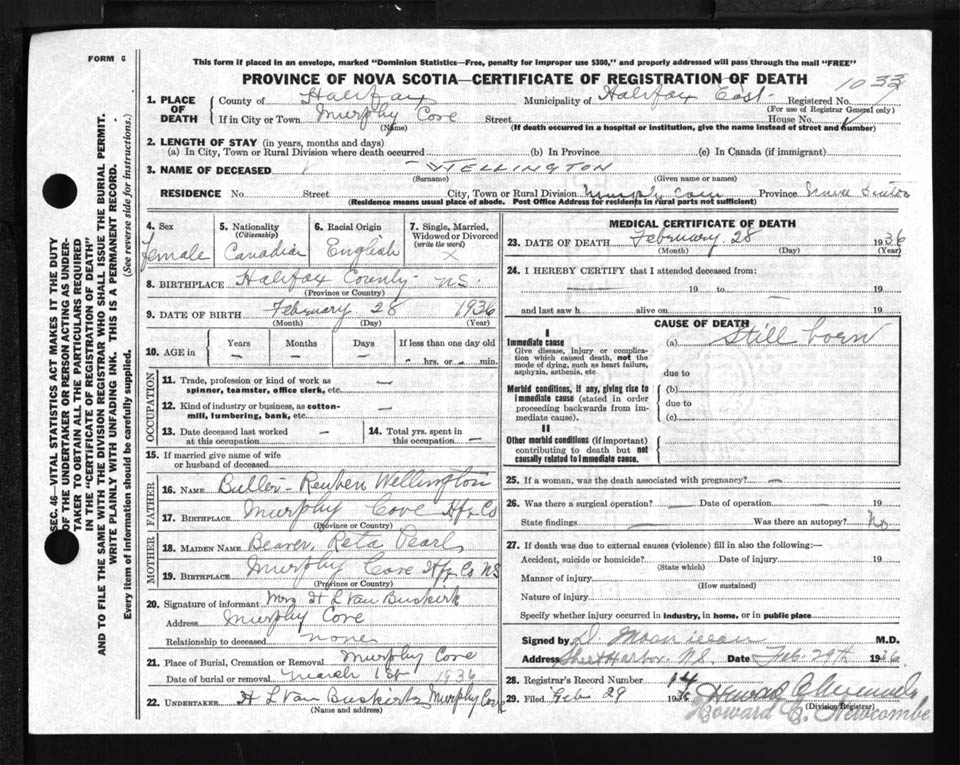 FORM 6
This form if placed in an envelope, marked "Dominion Statistics—Free, penalty for improper use $300," and properly addressed will pass through the mail "FREE"
PROVINCE OF NOVA SCOTIA—CERTIFICATE OF REGISTRATION OF DEATH
1033
1. PLACE OF DEATH
County of Halifax Municipality of Halifax East. Registered No.
(For use of Registrar General only)
If in City or Town Murphy Cove Street House No.
(Name) (If death occurred in a hospital or institution, give the name instead of street and number)
2. LENGTH OF STAY (in years, months and days)
(a) In City, Town or Rural Division where death occurred (b) In Province (c) In Canada (if immigrant)
3. NAME OF DECEASED
(Surname) (Given name or names)
RESIDENCE No. Street City, Town or Rural Division Murphy Cove Province Nova Scotia
(Residence means usual place of abode. Post Office Address for residents in rural parts not sufficient)
4. Sex 5. Nationality (Citizenship) 6. Racial Origin 7. Single, Married, Widowed or Divorced (write the word)
female Canadian English X
8. BIRTHPLACE Halifax County N.S.
(Province or Country)
9. DATE OF BIRTH February 28 1936
(Month) (Day) (Year)
10. AGE in Years Months Days If less than one day old
— — — - hrs. or - min.
OCCUPATION
11. Trade, profession or kind of work as spinner, teamster, office clerk, etc. —
12. Kind of industry or business, as cotton-mill, lumbering, bank, etc. —
13. Date deceased last worked at this occupation — 14. Total yrs. spent in this occupation —
15. If married give name of wife or husband of deceased
FATHER
16. NAME Butler - Reuben Wellington
17. BIRTHPLACE Murphy Cove Hfx Co
(Province or Country)
MOTHER
18. MAIDEN NAME Beaver, Reta Pearl
19. BIRTHPLACE Murphy Cove Hfx Co NS
(Province or Country)
20. Signature of informant Mrs H L Van Buskirk
Address Murphy Cove
Relationship to deceased none
21. Place of Burial, Cremation or Removal Murphy Cove
Date of burial or removal March 1st 1936
22. UNDERTAKER H L Van Buskirk Murphy Cove
(Name and address)
MEDICAL CERTIFICATE OF DEATH
23. DATE OF DEATH February 28 1936
(Month) (Day) (Year)
24. I HEREBY CERTIFY that I attended deceased from:
— 19 to — 19
and last saw h alive on 19
CAUSE OF DEATH
I
Immediate cause (a) Still born
Give disease, injury or complication which caused death, not the mode of dying, such as heart failure, asphyxia, asthenia, etc.
due to
Morbid conditions, if any, giving rise to immediate cause (stated in order proceeding backwards from immediate cause).
(b)
due to
(c)
II
Other morbid conditions (if important) contributing to death but not causally related to immediate cause.
25. If a woman, was the death associated with pregnancy? —
26. Was there a surgical operation? — Date of operation — 19
State findings — Was there an autopsy? No
27. If death was due to external causes (violence) fill in also the following:—
Accident, suicide or homicide? Date of injury 19
(State which)
Manner of injury
(How sustained)
Nature of injury
Specify whether injury occurred in industry, in home, or in public place
Signed by D. M.D.
Address Sheet Harbor. N.S. Date Feb. 29th 1936
28. Registrar's Record Number 14
29. Filed Feb 29 1936
Howard C. Newcombe
(Division Registrar)
SEC. 46—VITAL STATISTICS ACT MAKES IT THE DUTY
OF THE UNDERTAKER OR PERSON ACTING AS UNDER-
TAKER TO OBTAIN ALL THE PARTICULARS REQUIRED
IN THE "CERTIFICATE OF REGISTRATION OF DEATH"
AND TO FILE THE SAME WITH THE DIVISION REGISTRAR WHO SHALL ISSUE THE BURIAL PERMIT.
WRITE PLAINLY WITH UNFADING INK. THIS IS A PERMANENT RECORD.
Every item of information should be carefully supplied. (See reverse side for instructions.)